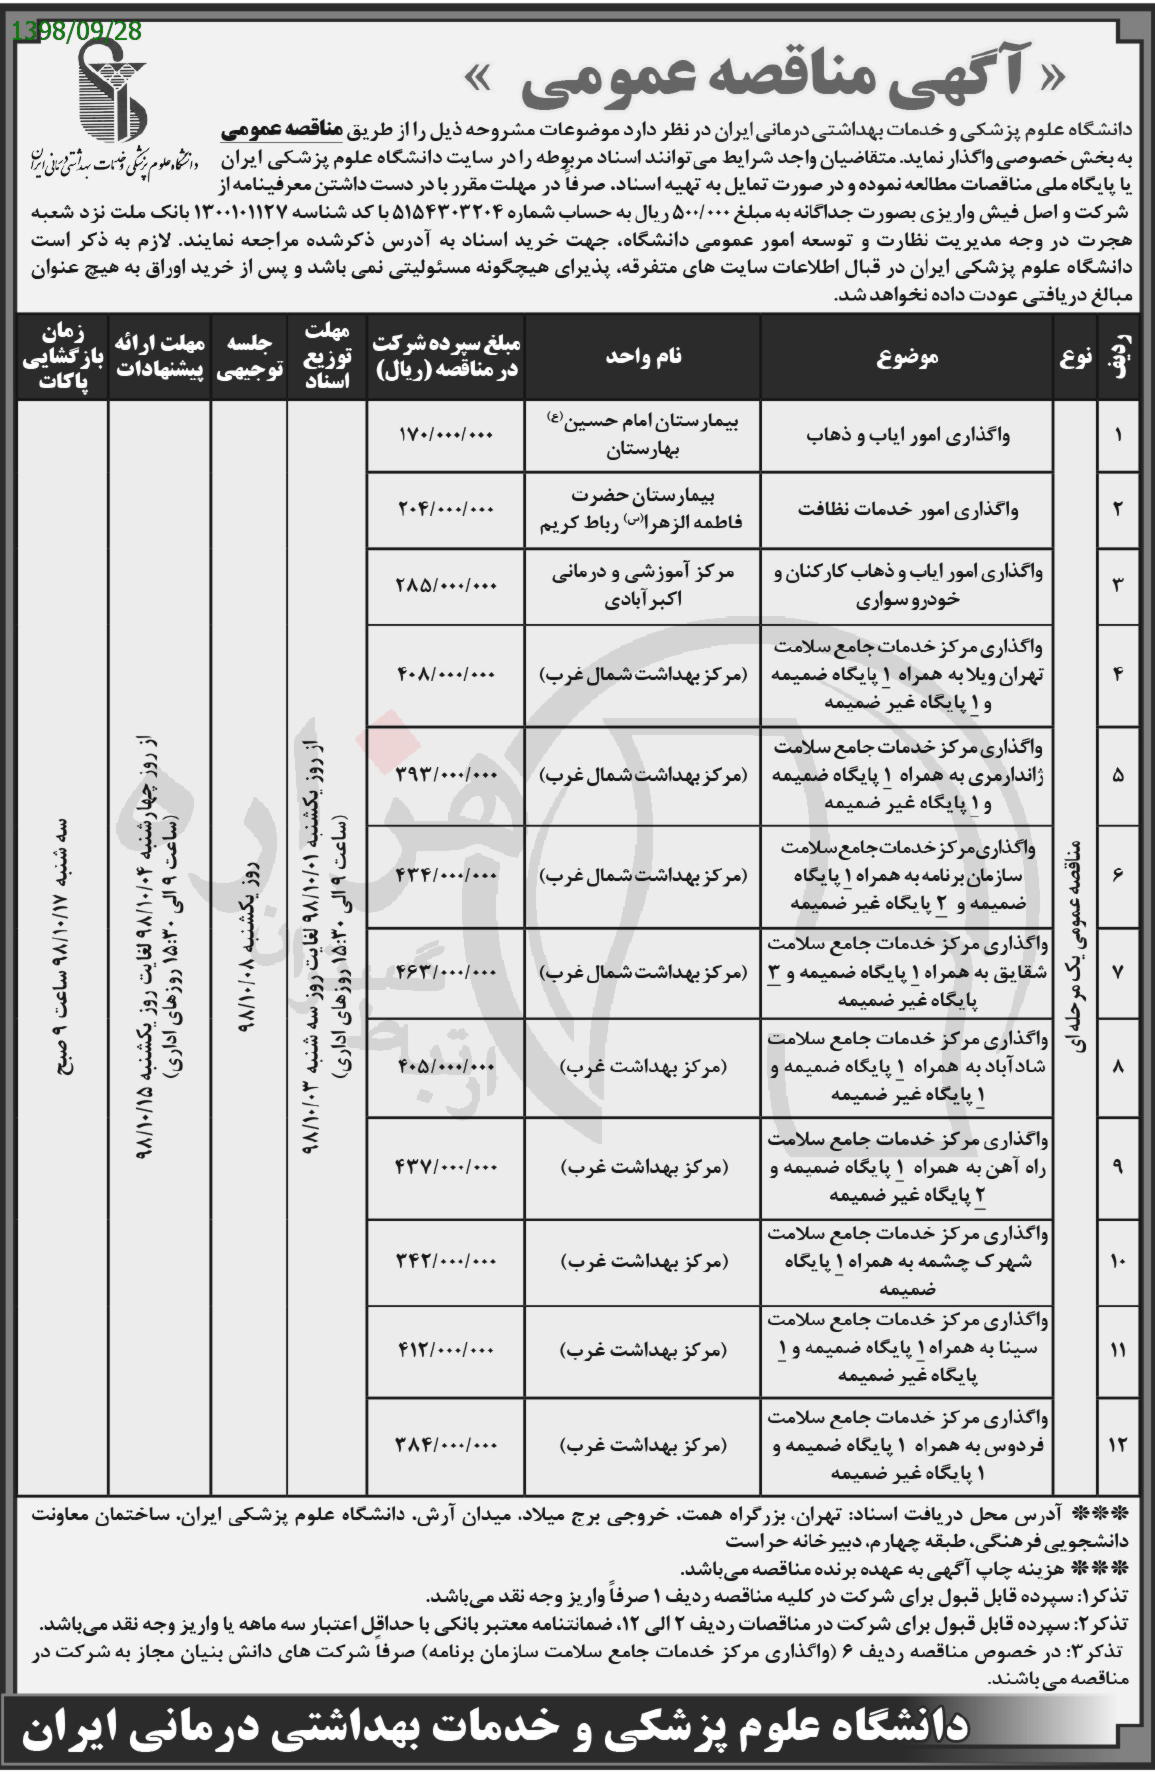 1398/09/28
« آگهی مناقصه عمومی »
دانشگاه علوم پزشکی و خدمات بهداشتی درمانی ایران
دانشگاه علوم پزشکی و خدمات بهداشتی درمانی ایران در نظر دارد موضوعات مشروحه ذیل را از طریق مناقصه عمومی
به بخش خصوصی واگذار نماید. متقاضیان واجد شرایط می‌توانند اسناد مربوطه را در سایت دانشگاه علوم پزشکی ایران
یا پایگاه ملی مناقصات مطالعه نموده و در صورت تمایل به تهیه اسناد، صرفاً در مهلت مقرر با در دست داشتن معرفینامه از
شرکت و اصل فیش واریزی بصورت جداگانه به مبلغ ۵۰۰/۰۰۰ ریال به حساب شماره ۵۱۵۴۳۰۳۲۰۴ با کد شناسه ۱۳۰۰۱۰۱۱۲۷ بانک ملت نزد شعبه
هجرت در وجه مدیریت نظارت و توسعه امور عمومی دانشگاه، جهت خرید اسناد به آدرس ذکرشده مراجعه نمایند. لازم به ذکر است
دانشگاه علوم پزشکی ایران در قبال اطلاعات سایت های متفرقه، پذیرای هیچگونه مسئولیتی نمی باشد و پس از خرید اوراق به هیچ عنوان
مبالغ دریافتی عودت داده نخواهد شد.
ردیف
نوع
موضوع
نام واحد
مبلغ سپرده شرکت
در مناقصه (ریال)
مهلت
توزیع
اسناد
جلسه
توجیهی
مهلت ارائه
پیشنهادات
زمان
بازگشایی
پاکات
مناقصه عمومی یک مرحله ای
۱
واگذاری امور ایاب و ذهاب
بیمارستان امام حسین(ع)
بهارستان
۱۷۰/۰۰۰/۰۰۰
۲
واگذاری امور خدمات نظافت
بیمارستان حضرت
فاطمه الزهرا(س) رباط کریم
۲۰۴/۰۰۰/۰۰۰
۳
واگذاری امور ایاب و ذهاب کارکنان و
خودرو سواری
مرکز آموزشی و درمانی
اکبرآبادی
۲۸۵/۰۰۰/۰۰۰
۴
واگذاری مرکز خدمات جامع سلامت
تهران ویلا به همراه ۱ پایگاه ضمیمه
و ۱ پایگاه غیر ضمیمه
(مرکز بهداشت شمال غرب)
۴۰۸/۰۰۰/۰۰۰
۵
واگذاری مرکز خدمات جامع سلامت
ژاندارمری به همراه ۱ پایگاه ضمیمه
و ۱ پایگاه غیر ضمیمه
(مرکز بهداشت شمال غرب)
۳۹۳/۰۰۰/۰۰۰
۶
واگذاری مرکز خدمات جامع سلامت
سازمان برنامه به همراه ۱ پایگاه
ضمیمه و ۲ پایگاه غیر ضمیمه
(مرکز بهداشت شمال غرب)
۴۳۴/۰۰۰/۰۰۰
۷
واگذاری مرکز خدمات جامع سلامت
شقایق به همراه ۱ پایگاه ضمیمه و ۳
پایگاه غیر ضمیمه
(مرکز بهداشت شمال غرب)
۴۶۳/۰۰۰/۰۰۰
۸
واگذاری مرکز خدمات جامع سلامت
شادآباد به همراه ۱ پایگاه ضمیمه و
۱ پایگاه غیر ضمیمه
(مرکز بهداشت غرب)
۴۰۵/۰۰۰/۰۰۰
۹
واگذاری مرکز خدمات جامع سلامت
راه آهن به همراه ۱ پایگاه ضمیمه و
۲ پایگاه غیر ضمیمه
(مرکز بهداشت غرب)
۴۳۷/۰۰۰/۰۰۰
۱۰
واگذاری مرکز خدمات جامع سلامت
شهرک چشمه به همراه ۱ پایگاه
ضمیمه
(مرکز بهداشت غرب)
۳۴۲/۰۰۰/۰۰۰
۱۱
واگذاری مرکز خدمات جامع سلامت
سینا به همراه ۱ پایگاه ضمیمه و ۱
پایگاه غیر ضمیمه
(مرکز بهداشت غرب)
۴۱۲/۰۰۰/۰۰۰
۱۲
واگذاری مرکز خدمات جامع سلامت
فردوس به همراه ۱ پایگاه ضمیمه و
۱ پایگاه غیر ضمیمه
(مرکز بهداشت غرب)
۳۸۴/۰۰۰/۰۰۰
از روز یکشنبه ۹۸/۱۰/۰۱ لغایت روز سه شنبه ۹۸/۱۰/۰۳
(ساعت ۹ الی ۱۵:۳۰ روزهای اداری)
روز یکشنبه ۹۸/۱۰/۰۸
از روز چهارشنبه ۹۸/۱۰/۰۴ لغایت روز یکشنبه ۹۸/۱۰/۱۵
(ساعت ۹ الی ۱۵:۳۰ روزهای اداری)
سه شنبه ۹۸/۱۰/۱۷ ساعت ۹ صبح
هزاره
*** آدرس محل دریافت اسناد: تهران، بزرگراه همت، خروجی برج میلاد، میدان آرش، دانشگاه علوم پزشکی ایران، ساختمان معاونت
دانشجویی فرهنگی، طبقه چهارم، دبیرخانه حراست
*** هزینه چاپ آگهی به عهده برنده مناقصه می‌باشد.
تذکر۱: سپرده قابل قبول برای شرکت در کلیه مناقصه ردیف ۱ صرفاً واریز وجه نقد می‌باشد.
تذکر۲: سپرده قابل قبول برای شرکت در مناقصات ردیف ۲ الی ۱۲، ضمانتنامه معتبر بانکی با حداقل اعتبار سه ماهه یا واریز وجه نقد می‌باشد.
تذکر۳: در خصوص مناقصه ردیف ۶ (واگذاری مرکز خدمات جامع سلامت سازمان برنامه) صرفاً شرکت های دانش بنیان مجاز به شرکت در
مناقصه می باشند.
دانشگاه علوم پزشکی و خدمات بهداشتی درمانی ایران